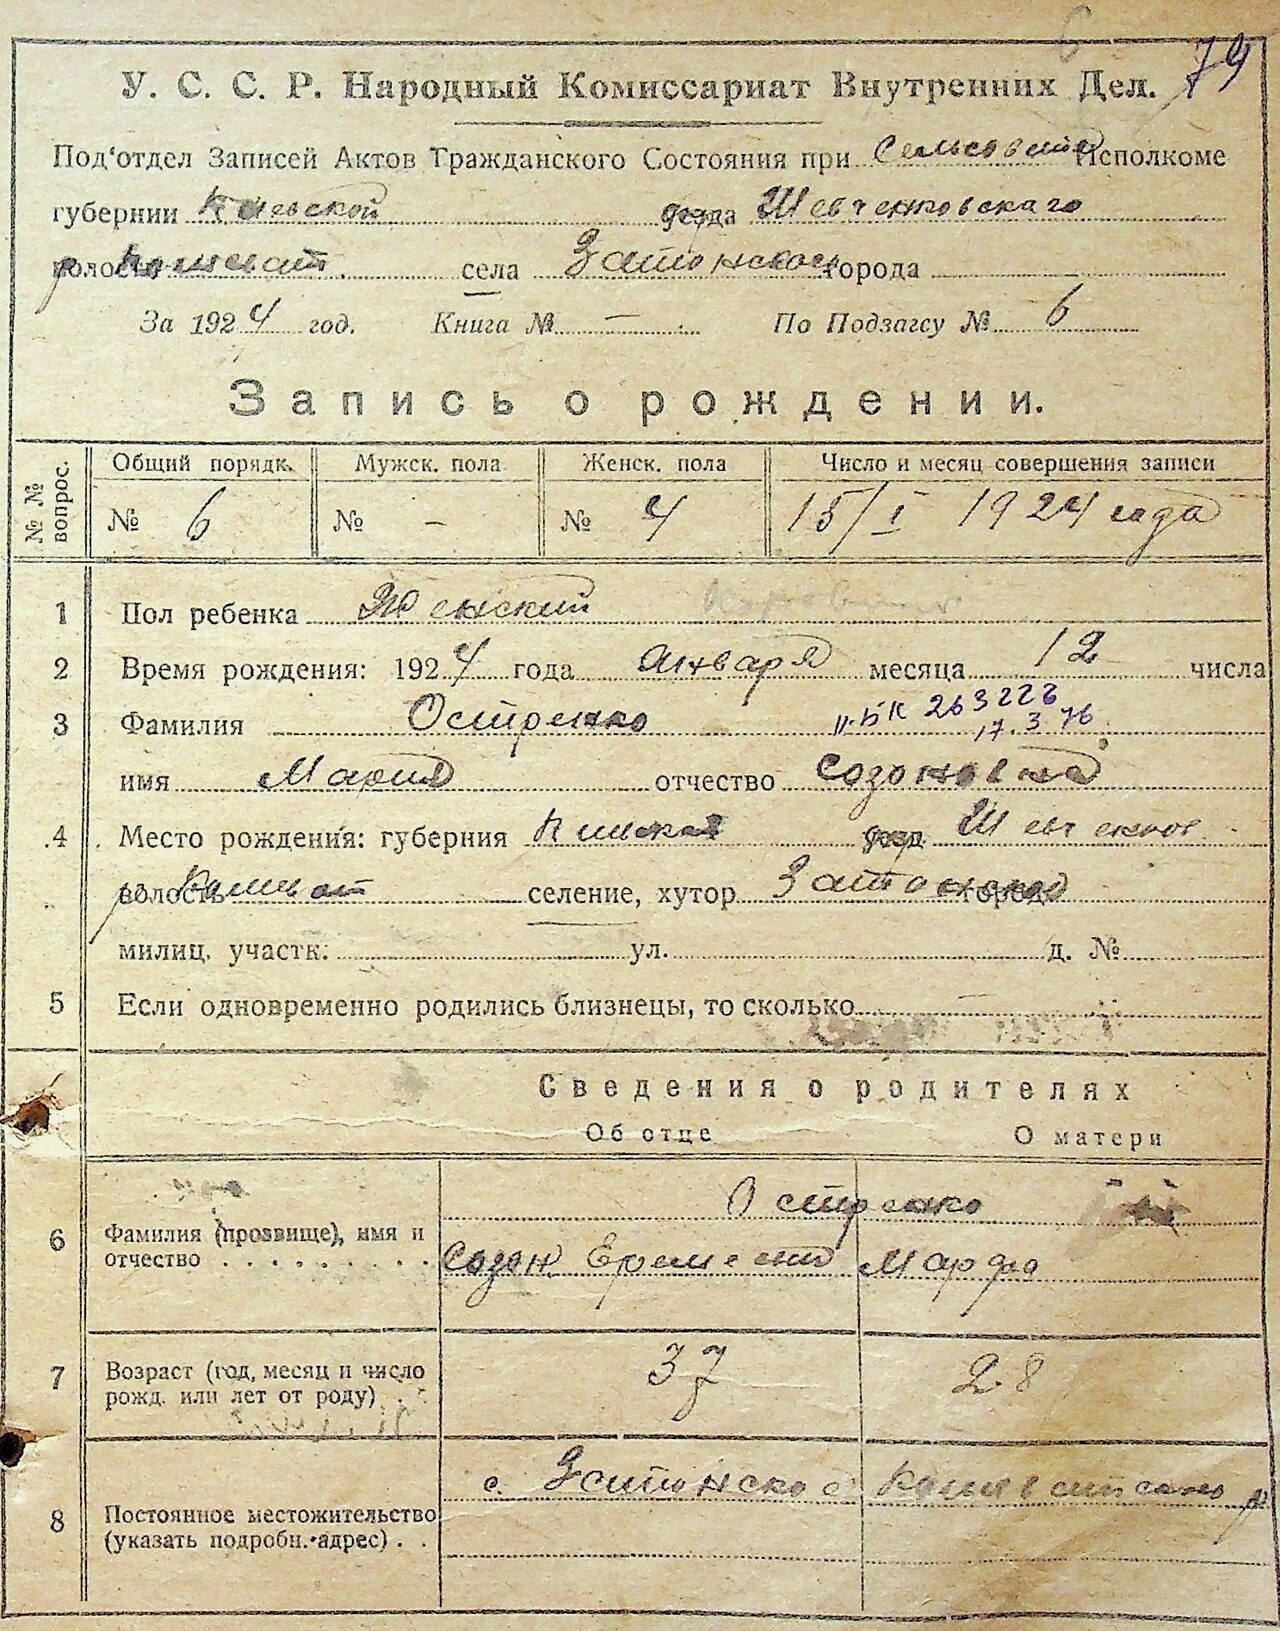 6
79
У. С. С. Р. Народный Комиссариат Внутренних Дел.
Под'отдел Записей Актов Гражданского Состояния при Сельсовета Исполкоме
губернии Киевской уезда Шевченковскаго
волости села Затонское города
За 1924 год. Книга № — По Подзагсу № 6
Запись о рождении.
№ № вопрос. Общий порядк. Мужск. пола Женск. пола Число и месяц совершения записи
№ 6 № - № 4 15/I 1924 года
1 Пол ребенка Женский
2 Время рождения: 1924 года января месяца 12 числа
3 Фамилия Остренко II-БК 263226
17.3.76
имя Мария отчество Созоновна
4 Место рождения: губерния Киевская уезд Шевченков
волость селение, хутор Затонское город
милиц. участк. ул. д. №
5 Если одновременно родились близнецы, то сколько —
Сведения о родителях
Об отце О матери
Остренко
6 Фамилия (прозвище), имя и
отчество . . . . . . . . . Созон Еремеев Марфа
7 Возраст (год, месяц и число
рожд. или лет от роду) . . 37 28
с. Затонское
8 Постоянное местожительство
(указать подробн. адрес) . .